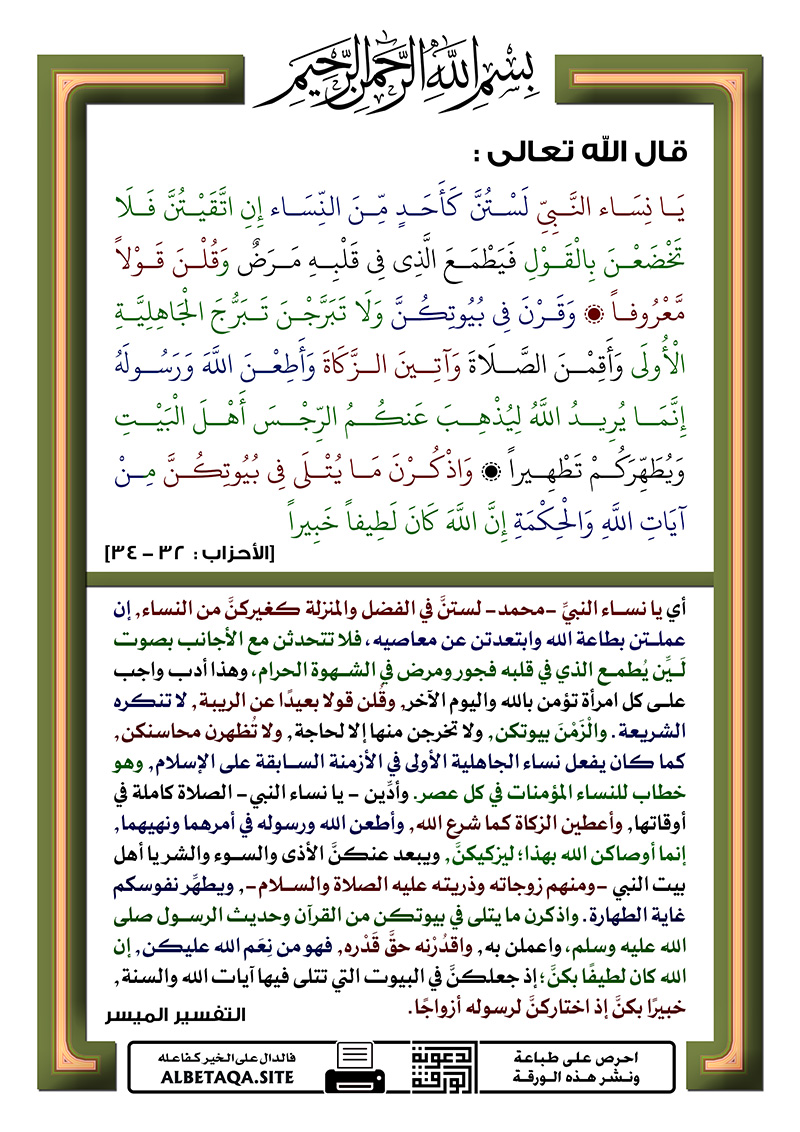 بِسْمِ اللَّهِ الرَّحْمَنِ الرَّحِيمِ
قال الله تعالى :
يَا نِسَاء النَّبِيِّ لَسْتُنَّ كَأَحَدٍ مِّنَ النِّسَاء إِنِ اتَّقَيْتُنَّ فَلَا
تَخْضَعْنَ بِالْقَوْلِ فَيَطْمَعَ الَّذِي فِي قَلْبِهِ مَرَضٌ وَقُلْنَ قَوْلاً
مَّعْرُوفاً ۞ وَقَرْنَ فِي بُيُوتِكُنَّ وَلَا تَبَرَّجْنَ تَبَرُّجَ الْجَاهِلِيَّةِ
الْأُولَى وَأَقِمْنَ الصَّلَاةَ وَآتِينَ الزَّكَاةَ وَأَطِعْنَ اللَّهَ وَرَسُولَهُ
إِنَّمَا يُرِيدُ اللَّهُ لِيُذْهِبَ عَنكُمُ الرِّجْسَ أَهْلَ الْبَيْتِ
وَيُطَهِّرَكُمْ تَطْهِيراً ۞ وَاذْكُرْنَ مَا يُتْلَى فِي بُيُوتِكُنَّ مِنْ
آيَاتِ اللَّهِ وَالْحِكْمَةِ إِنَّ اللَّهَ كَانَ لَطِيفاً خَبِيراً
[الأحزاب : ٣٢ - ٣٤]
أي يا نساء النبيِّ -محمد- لستنَّ في الفضل والمنزلة كغيركنَّ من النساء, إن
عملتن بطاعة الله وابتعدتن عن معاصيه، فلا تتحدثن مع الأجانب بصوت
لَيِّن يُطمع الذي في قلبه فجور ومرض في الشهوة الحرام، وهذا أدب واجب
على كل امرأة تؤمن بالله واليوم الآخر, وقُلن قولا بعيدًا عن الريبة, لا تنكره
الشريعة. والْزَمْنَ بيوتكن, ولا تخرجن منها إلا لحاجة, ولا تُظهرن محاسنكن,
كما كان يفعل نساء الجاهلية الأولى في الأزمنة السابقة على الإسلام, وهو
خطاب للنساء المؤمنات في كل عصر. وأدِّين - يا نساء النبي- الصلاة كاملة في
أوقاتها, وأعطين الزكاة كما شرع الله, وأطعن الله ورسوله في أمرهما ونهيهما,
إنما أوصاكن الله بهذا؛ ليزكيكنَّ, ويبعد عنكنَّ الأذى والسوء والشر يا أهل
بيت النبي -ومنهم زوجاته وذريته عليه الصلاة والسلام-, ويطهِّر نفوسكم
غاية الطهارة. واذكرن ما يتلى في بيوتكن من القرآن وحديث الرسول صلى
الله عليه وسلم، واعملن به, واقدُرْنه حقَّ قَدْره, فهو من نِعَم الله عليكن, إن
الله كان لطيفًا بكنَّ؛ إذ جعلكنَّ في البيوت التي تتلى فيها آيات الله والسنة,
خبيرًا بكنَّ إذ اختاركنَّ لرسوله أزواجًا.
التفسير الميسر
احرص على طباعة
ونشر هذه الورقة
الورقة الدعوية
فالدال على الخير كفاعله
ALBETAQA.SITE